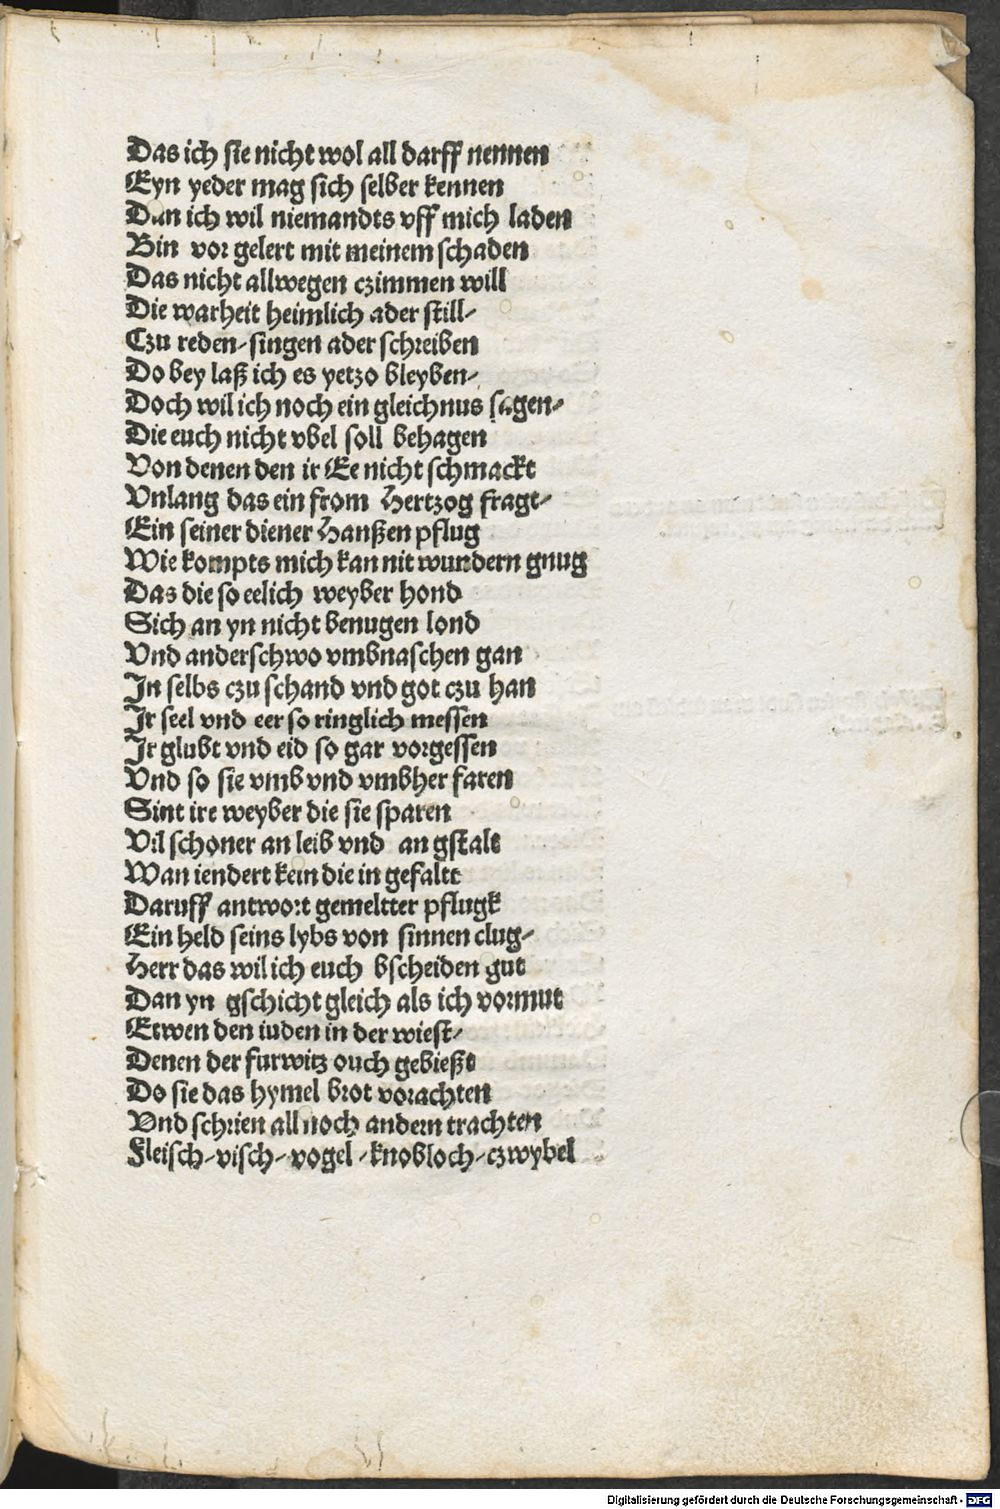 Das ich sie nicht wol all darff nennen
Eyn yeder mag sich selber kennen
Dan ich wil niemandts vff mich laden
Bin vor gelert mit meinem schaden
Das nicht allwegen czimmen will
Die warheit heimlich ader still/
Czu reden/ singen ader schreiben
Do bey laß ich es yetzo bleyben/
Doch wil ich noch ein gleichnus sagen/
Die euch nicht vbel soll behagen
Von denen den ir Ee nicht schmackt
Vnlang das ein from Hertzog fragt/
Ein seiner diener Hanßen pflug
Wie kompts mich kan nit wundern gnug
Das die so eelich weyber hond
Sich an yn nicht benugen lond
Vnd anderschwo vmbnaschen gan
In selbs czu schand vnd got czu han
Ir seel vnd eer so ringlich messen
Ir glubt vnd eid so gar vorgessen
Vnd so sie vmb vnd vmbher faren
Sint ire weyber die sie sparen
Vil schoner an leib vnd an gstalt
Wan iendert kein die in gefaltt
Daruff antwort gemeltter pflugk
Ein held seins lybs von sinnen clug/
Herr das wil ich euch bscheiden gut
Dan yn gschicht gleich als ich vormut
Etwen den iuden in der wiest/
Denen der furwitz ouch gebießt
Do sie das hymel brot vorachten
Vnd schrien all noch andern trachten
Fleisch/ visch/ vogel/ knobloch/ czwybel
Digitalisierung gefördert durch die Deutsche Forschungsgemeinschaft - DFG